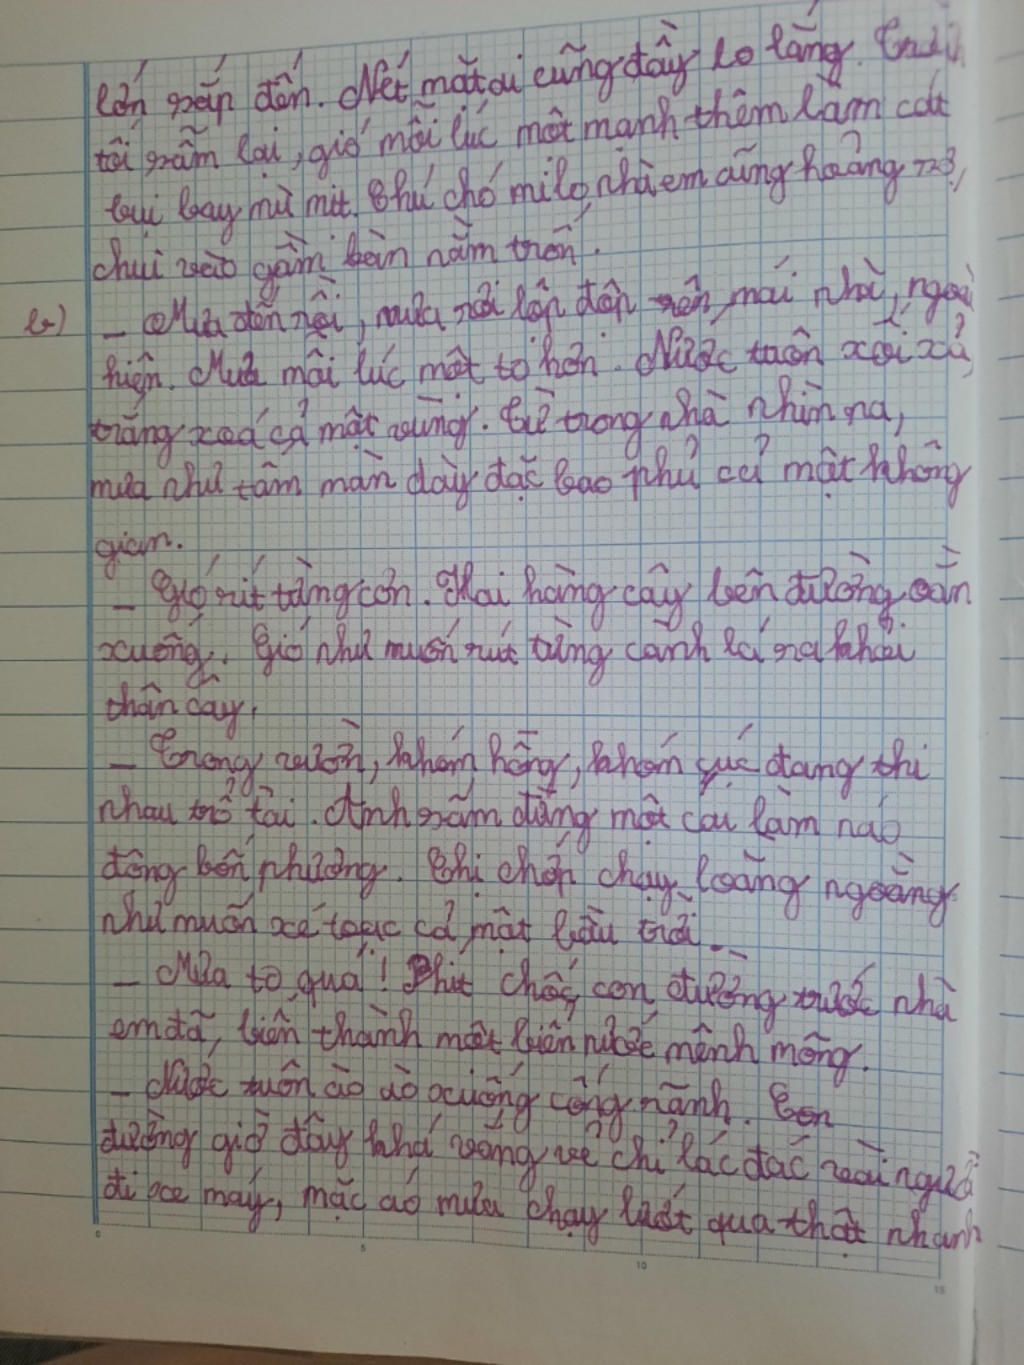 lớn sắp đến. Nét mặt ai cũng đầy lo lắng. Trời
tối sầm lại, gió mỗi lúc một mạnh thêm làm cát
bụi bay mù mịt. Chú chó milo nhà em cũng hoảng sợ,
chui vào gầm bàn nằm trốn.
b) – Mưa đến rồi, mưa rơi lộp độp trên mái nhà, ngoài
hiện. Mưa mỗi lúc một to hơn. Nước tuôn xối xả,
trắng xoá cả một vùng. Từ trong nhà nhìn ra,
mưa như tấm màn dày đặc bao phủ cả một không
gian.
– Gió rít từng cơn. Hai hàng cây bên đường oằn
xuống. Gió như muốn rút từng cành lá ra khỏi
thân cây.
– Trong vườn, khóm hồng, khóm cúc đang thi
nhau trổ tài. Anh sấm đùng một cái làm náo
động bốn phương. Chị chớp chạy loằng ngoằng
như muốn xé toạc cả một bầu trời.
– Mưa to quá! Phút chốc, con đường trước nhà
em đã biến thành một biển nước mênh mông.
– Nước tuôn ào ào xuống cống rãnh. Con
đường giờ đây khá vắng vẻ chỉ lác đác vài người
đi xe máy, mặc áo mưa chạy lướt qua thật nhanh
0 5 10 15